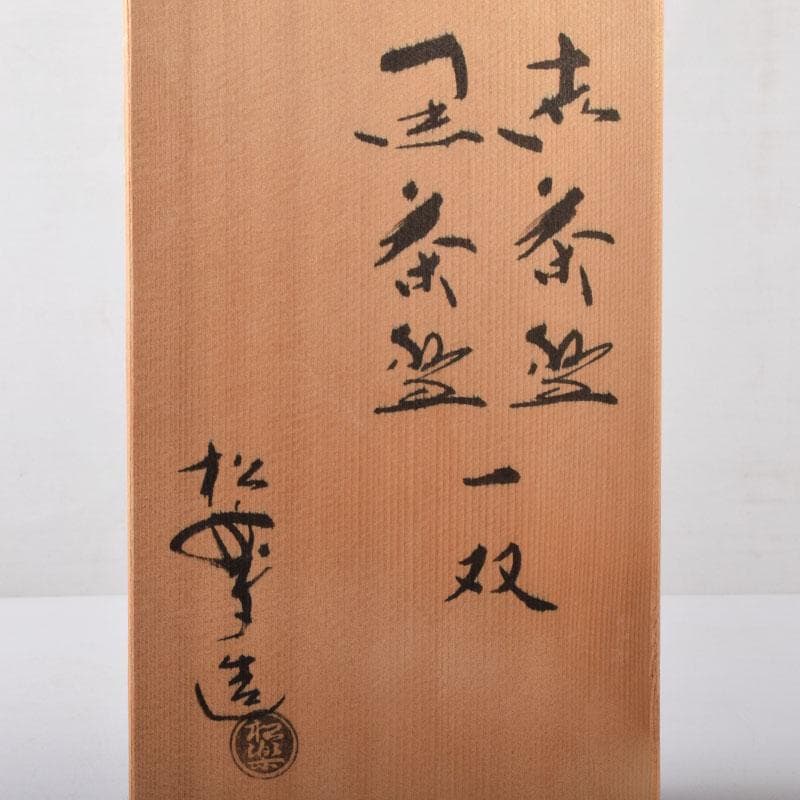 赤茶盌
黒茶盌
一双
松楽造
松楽